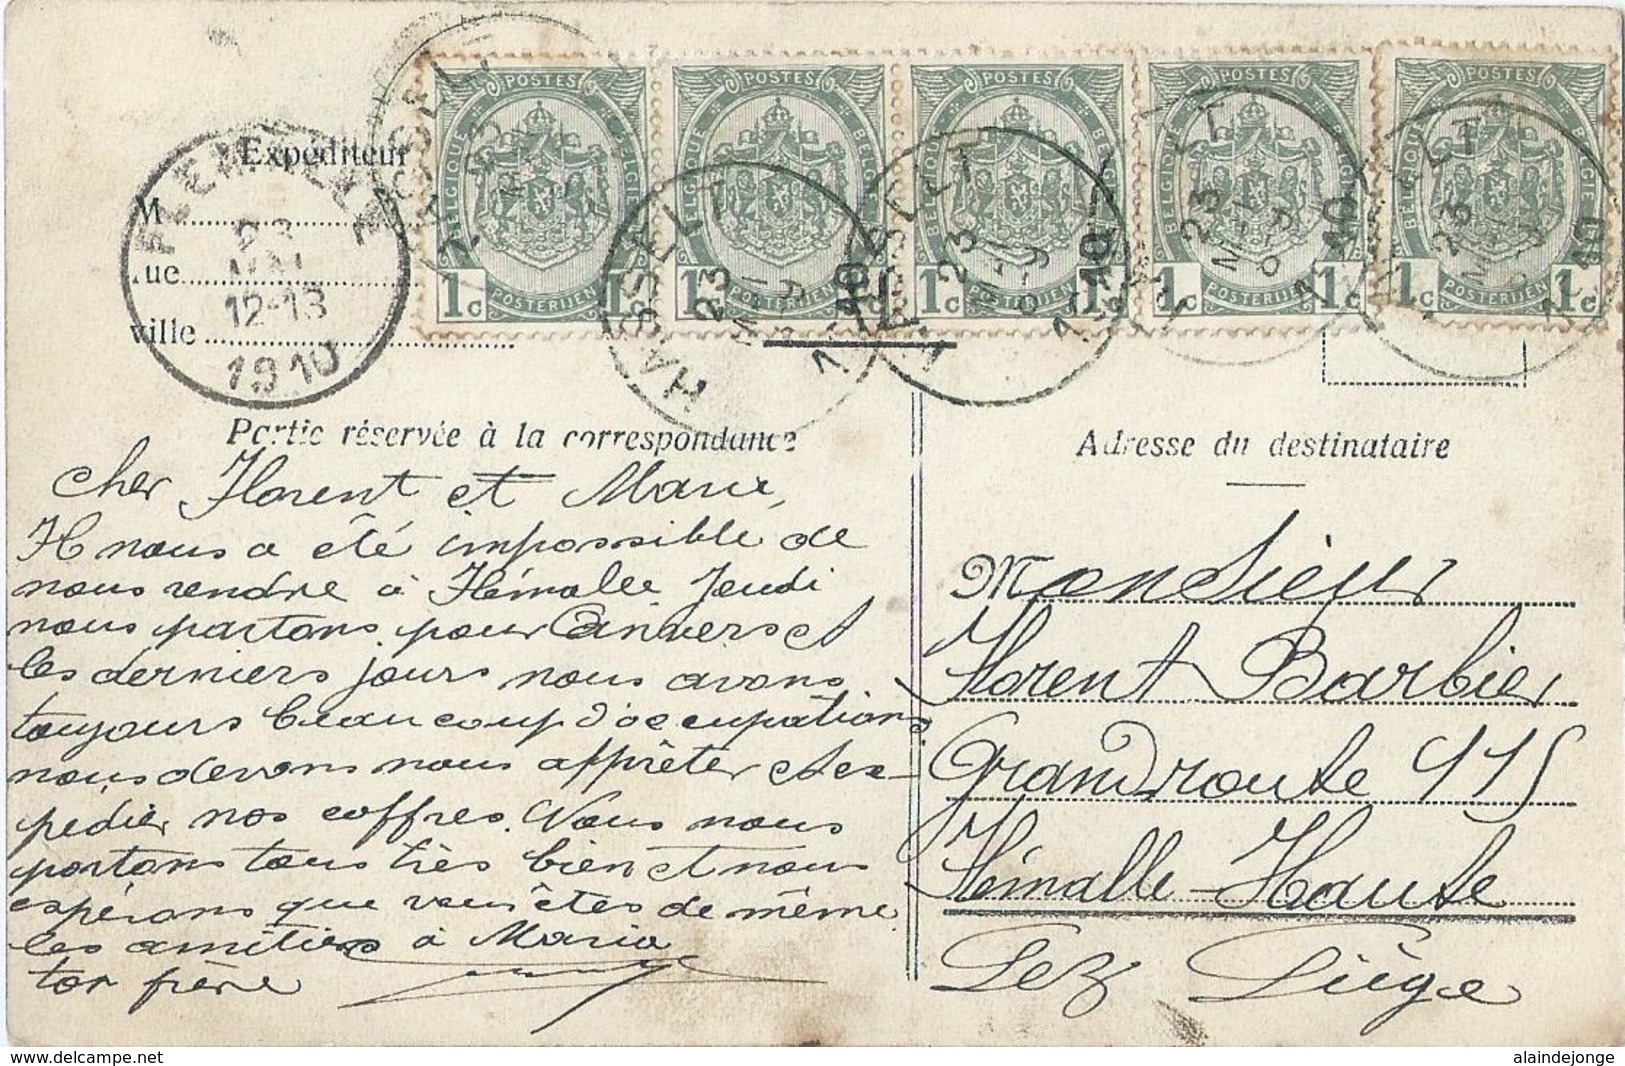 POSTES POSTES POSTES POSTES POSTES
BELGIQUE BELGIE BELGIQUE BELGIE BELGIQUE BELGIE BELGIQUE BELGIE BELGIQUE BELGIE
1c 1c 1c 1c 1c 1c 1c 1c 1c 1c
POSTERIJEN POSTERIJEN POSTERIJEN POSTERIJEN POSTERIJEN
HASSELT 23 MEI 8-9 1910
HASSELT 23 MEI 8-9 1910
23
12-13
1910
Expéditeur
M
rue
ville
Partie réservée à la correspondance
Cher Florent et Marie,
Il nous a été impossible de
nous rendre à Flémalle Jeudi
nous partons pour Anvers et
les derniers jours nous avons
toujours beaucoup d'occupations
nous devons nous apprêter et ex-
pedier nos coffres. Nous nous
portons tous très bien et nous
espérons que vous êtes de même
les amitiés à Maria
ton frère
Adresse du destinataire
Monsieur
Florent Barbier
Grand route 115
Flémalle-Haute
Lez Liège
alaindejonge